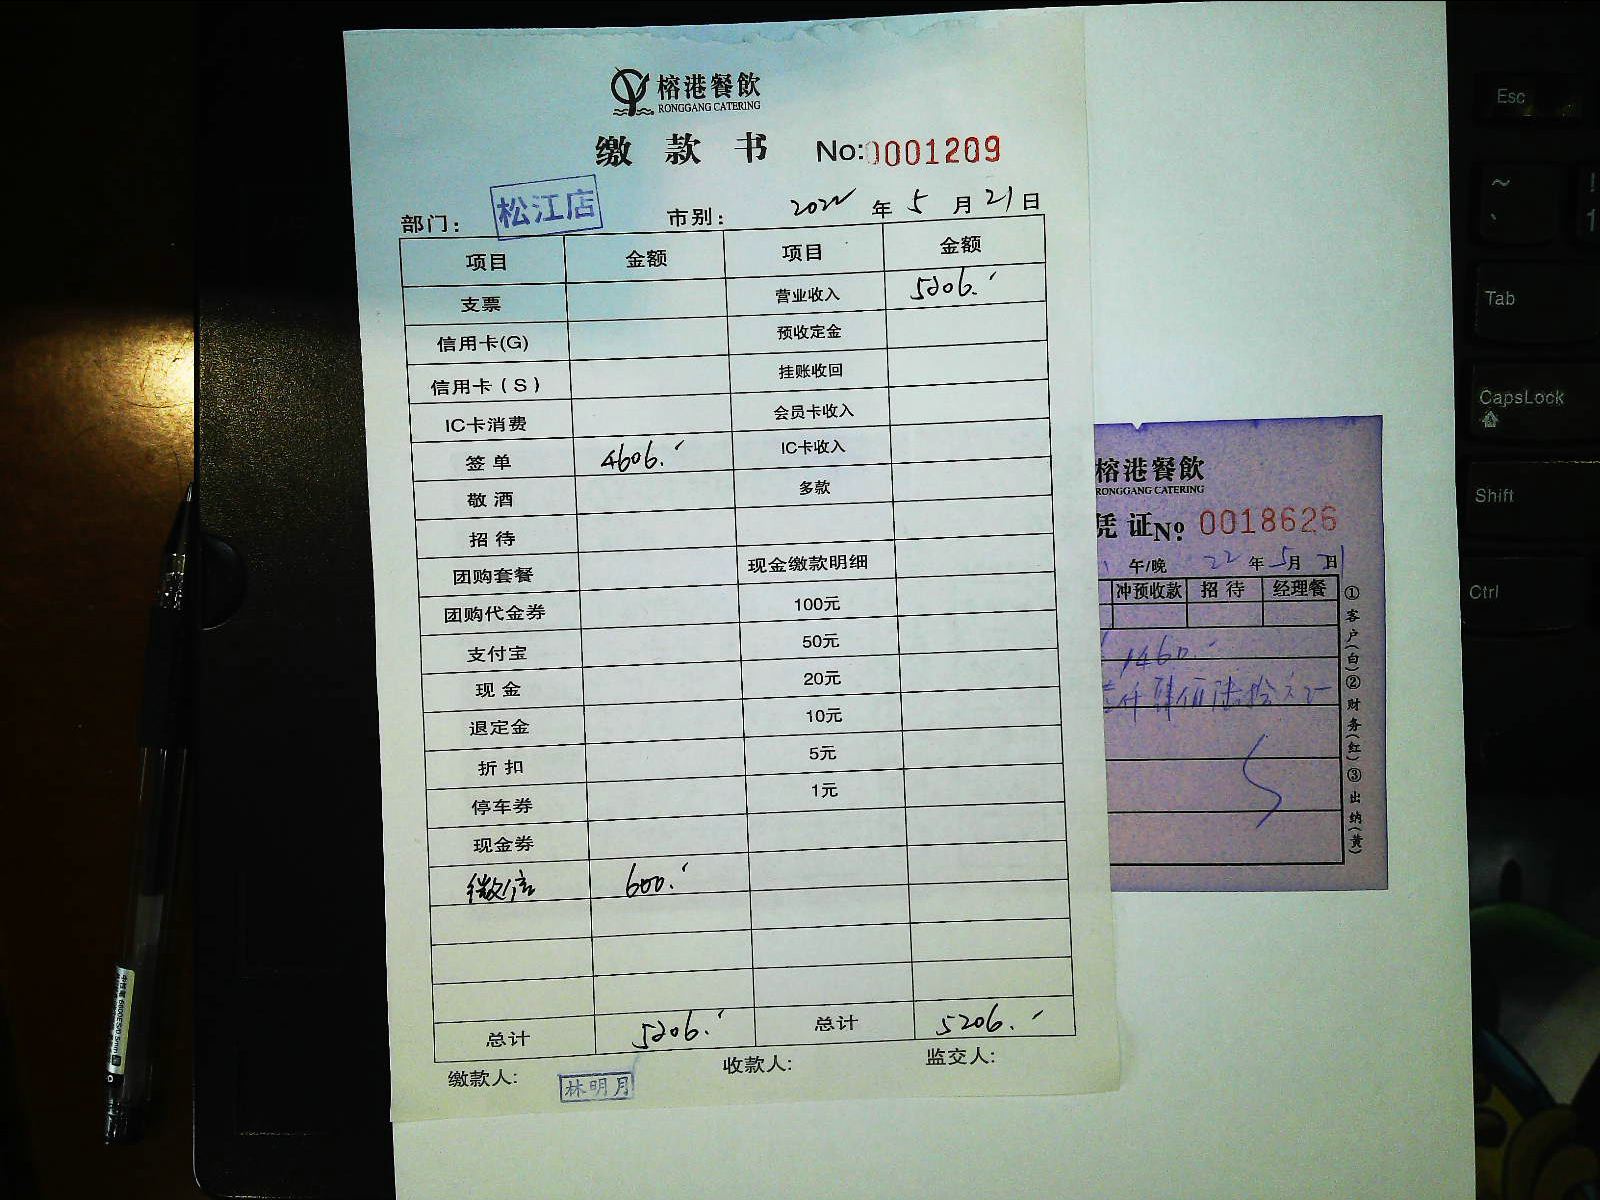 榕港餐飲
RONGGANG CATERING
缴款书 No:0001209
部门： 松江店 市别： 2022 年 5 月 21 日
项目 金额 项目 金额
支票 营业收入 5206.-
信用卡(G) 预收定金
信用卡(S) 挂账收回
IC卡消费 会员卡收入
签单 4606.- IC卡收入
敬酒 多款
招待
团购套餐 现金缴款明细
团购代金券 100元
支付宝 50元
现金 20元
退定金 10元
折扣 5元
停车券 1元
现金券
微信 600.-
总计 5206.- 总计 5206.-
缴款人: 林明月 收款人: 监交人:
榕港餐飲
RONGGANG CATERING
凭证No 0018626
午/晚 22 年 5 月 21 日
冲预收款 招待 经理餐
1460.-
壹仟肆佰陆拾元
①客户(白)②财务(红)③出纳(黄)
Esc
~
`
!
1
Tab
CapsLock
Shift
Ctrl